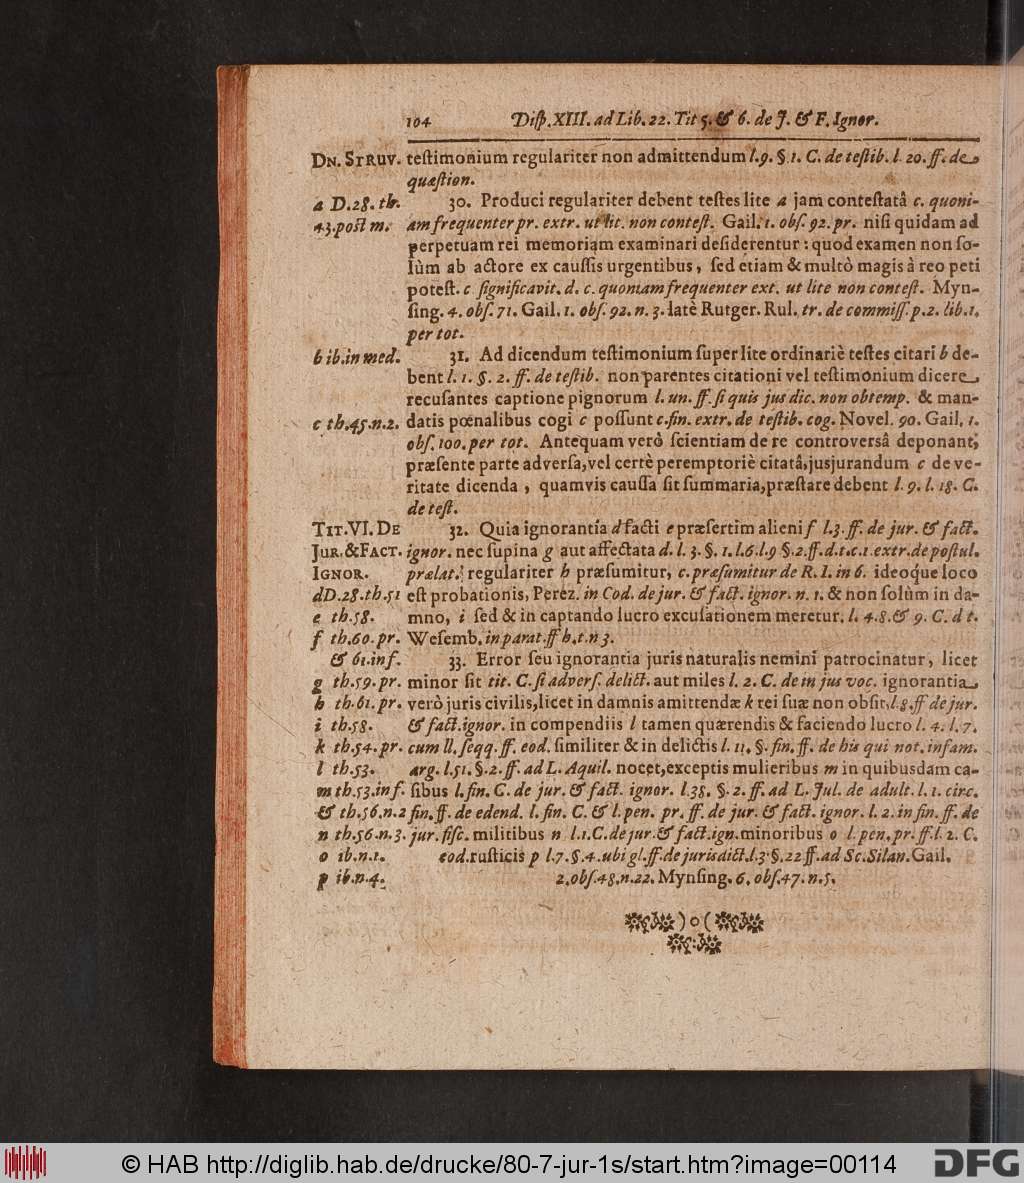 104 Disp. XIII. ad Lib. 22. Tit 5. & 6. de J. & F. Ignor.
DN. STRUV. teſtimonium regulariter non admittendum l. 9. §. 1. C. de teſtib. l 20. ff. de
quæſtion.
a D. 28. th. 30. Produci regulariter debent teſtes lite a jam conteſtatâ c. quoni-
43. post m. am frequenter pr. extr. ut lit. non conteſt. Gail. 1. obſ. 92. pr. niſi quidam ad
perpetuam rei memoriam examinari deſiderentur : quod examen non ſo-
lùm ab actore ex cauſſis urgentibus, ſed etiam & multò magis â reo peti
poteſt. c ſignificavit. d. c. quoniam frequenter ext. ut lite non conteſt. Myn-
ſing. 4. obſ. 71. Gail. 1. obſ. 92. n. 3. latè Rutger. Rul. tr. de commiſſ. p. 2. lib. 1.
per tot.
b ib. in med. 31. Ad dicendum teſtimonium ſuper lite ordinariè teſtes citari b de-
bent l. 1. §. 2. ff. de teſtib. non parentes citationi vel teſtimonium dicere
recuſantes captione pignorum l. un. ff. ſi quis jus dic. non obtemp. & man-
c th. 45. n. 2. datis pœnalibus cogi c poſſunt c. fin. extr. de teſtib. cog. Novel. 90. Gail. 1.
obſ. 100. per tot. Antequam verò ſcientiam de re controversâ deponant,
præſente parte adverſa, vel certè peremptoriè citatâ, jusjurandum c de ve-
ritate dicenda, quamvis cauſſa ſit ſummaria, præſtare debent l. 9. l. 18. C.
de teſt.
TIT. VI. DE 32. Quia ignorantia d facti e præſertim alieni f l. 3. ff. de jur. & fact.
JUR. & FACT. ignor. nec ſupina g aut affectata d. l. 3. §. 1. l. 6. l. 9 §. 2. ff. d. t. c. 1. extr. de poſtul.
IGNOR. prælat. regulariter h præſumitur, c. præſumitur de R. I. in 6. ideoque loco
d D. 28. th. 51 eſt probationis, Perez. in Cod. de jur. & fact. ignor. n. 1. & non ſolùm in da-
e th. 58. mno, i ſed & in captando lucro excuſationem meretur. l. 4. 8. & 9. C. d t.
f th. 60. pr. Weſemb. in parat. ff h. t. n 3.
& 61. inf. 33. Error ſeu ignorantia juris naturalis nemini patrocinatur, licet
g th. 59. pr. minor ſit tit. C. ſi adverſ. delict. aut miles l. 2. C. de in jus voc. ignorantia
h th. 61. pr. verò juris civilis, licet in damnis amittendæ k rei ſuæ non obſit, l. 8. ff de jur.
i th. 58. & fact. ignor. in compendiis l tamen quærendis & faciendo lucro l. 4. l. 7.
k th. 54. pr. cum ll. ſeqq. ff. eod. ſimiliter & in delictis l. 11. §. fin. ff. de his qui not. infam.
l th. 53. arg. l. 51. §. 2. ff. ad L. Aquil. nocet, exceptis mulieribus m in quibusdam ca-
m th. 53. inf. ſibus l. fin. C. de jur. & fact. ignor. l. 38. §. 2. ff. ad L. Jul. de adult. l. 1. circ.
& th. 56. n. 2 fin. ff. de edend. l. fin. C. & l. pen. pr. ff. de jur. & fact. ignor. l. 2. in fin. ff. de
n th. 56. n. 3. jur. fiſc. militibus n l. 1. C. de jur. & fact. ign. minoribus o l. pen. pr. ff. l. 2. C.
o ib. n. 1. eod. ruſticis p l. 7. §. 4. ubi gl. ff. de jurisdict. l. 3. §. 22 ff. ad Sc. Silan. Gail.
p ib. n. 4. 2. obſ. 48. n. 22. Mynſing. 6. obſ. 47. n. 5.
) o (
© HAB http://diglib.hab.de/drucke/80-7-jur-1s/start.htm?image=00114 DFG